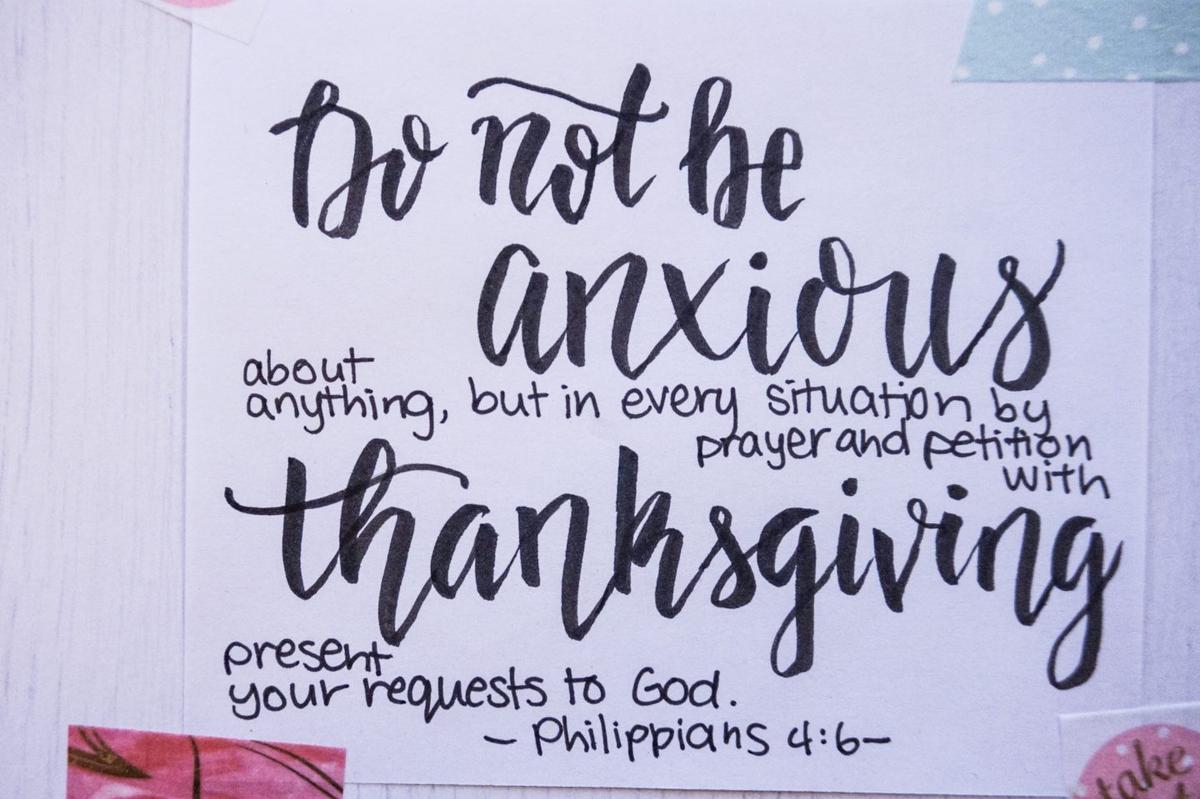 Do not be
anxious
about
anything, but in every situation by
prayer and petition
with
thanksgiving
present
your requests to God.
- Philippians 4:6-
take